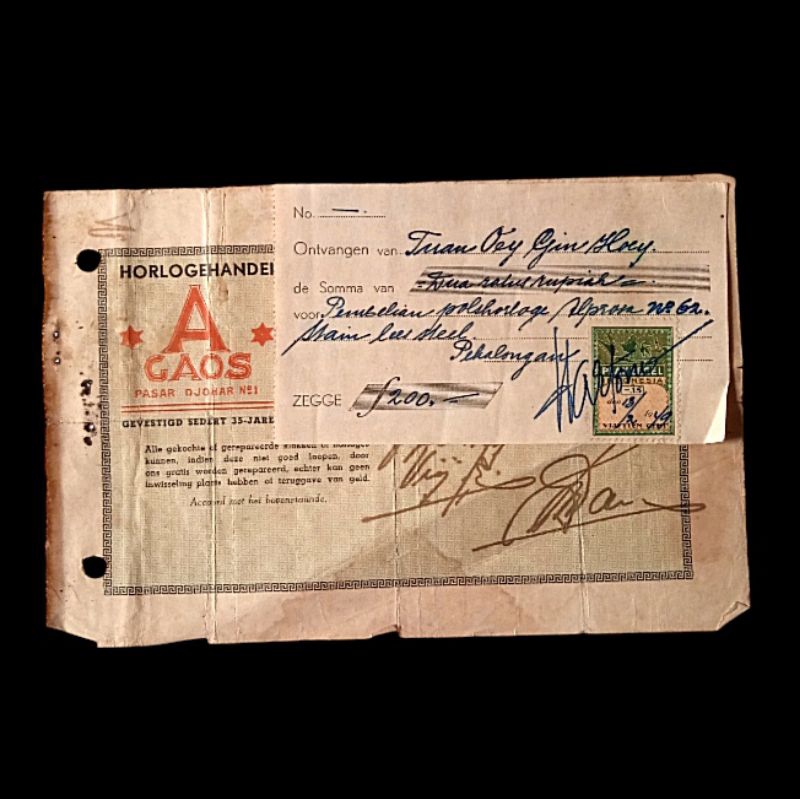 No. —.
Ontvangen van Tuan Oey Gin Hoey.
de Somma van Dua ratus rupiah
voor Pembelian polshorloge Alprosa No 62.
Stain lees steel
Pekalongan
ZEGGE f 200.—
INDONESIA
VIJFTIEN CENT
HORLOGEHANDEL
A
GAOS
PASAR DJOHAR No 1
GEVESTIGD SEDERT 35-JARE
Alle gekochte of gerepareerde klokken of horloges
kunnen, indien deze niet goed loopen, door
ons gratis worden gerepareerd, echter kan geen
inwisseling plaats hebben of teruggave van geld.
Accoord met het bovenstaande.